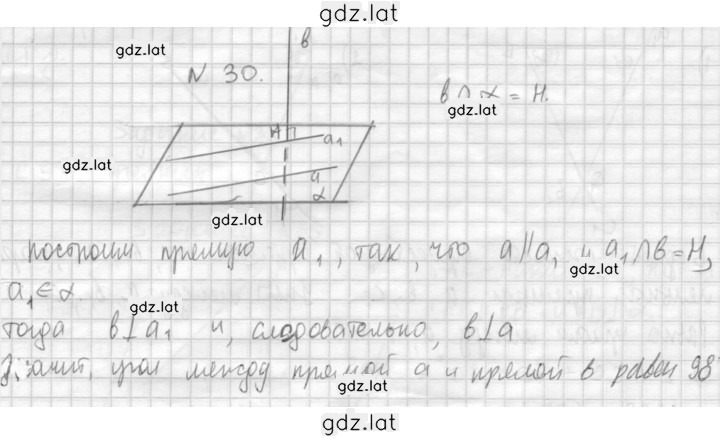 gdz.lat
gdz.lat
в
N 30.
в ∩ α = H.
gdz.lat
H
a₁
gdz.lat
a
α
gdz.lat
построим прямую a₁, так, что a || a₁ и a₁ ∩ в = H,
gdz.lat
a₁ ∈ α
gdz.lat
тогда в ⊥ a₁ и, следовательно, в ⊥ a
значит, угол между прямой a и прямой в равен 90°
gdz.lat
gdz.lat